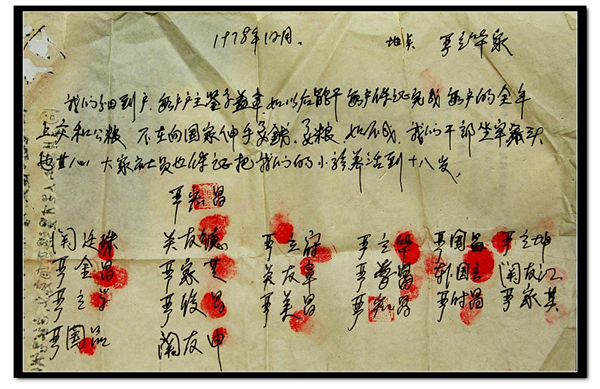 1978年12月。 地点 严立华家
我们分田到户 每户户主签字盖章 如以后能干 每户保证完成每户的全年
上交和公粮 不在向国家伸手要钱、要粮，如不成，我们干部坐牢杀头
也甘心，大家社员也保证把我们的小孩养活到十八岁，
严宏昌
关廷珠 关友德 严立富 严立华 严国昌 严立坤
严金昌 严家芝 关友章 严学昌 韩国云 关友江
严立学 严俊昌 严美昌 严宏昌 严付昌 严家其
严国品 关友申